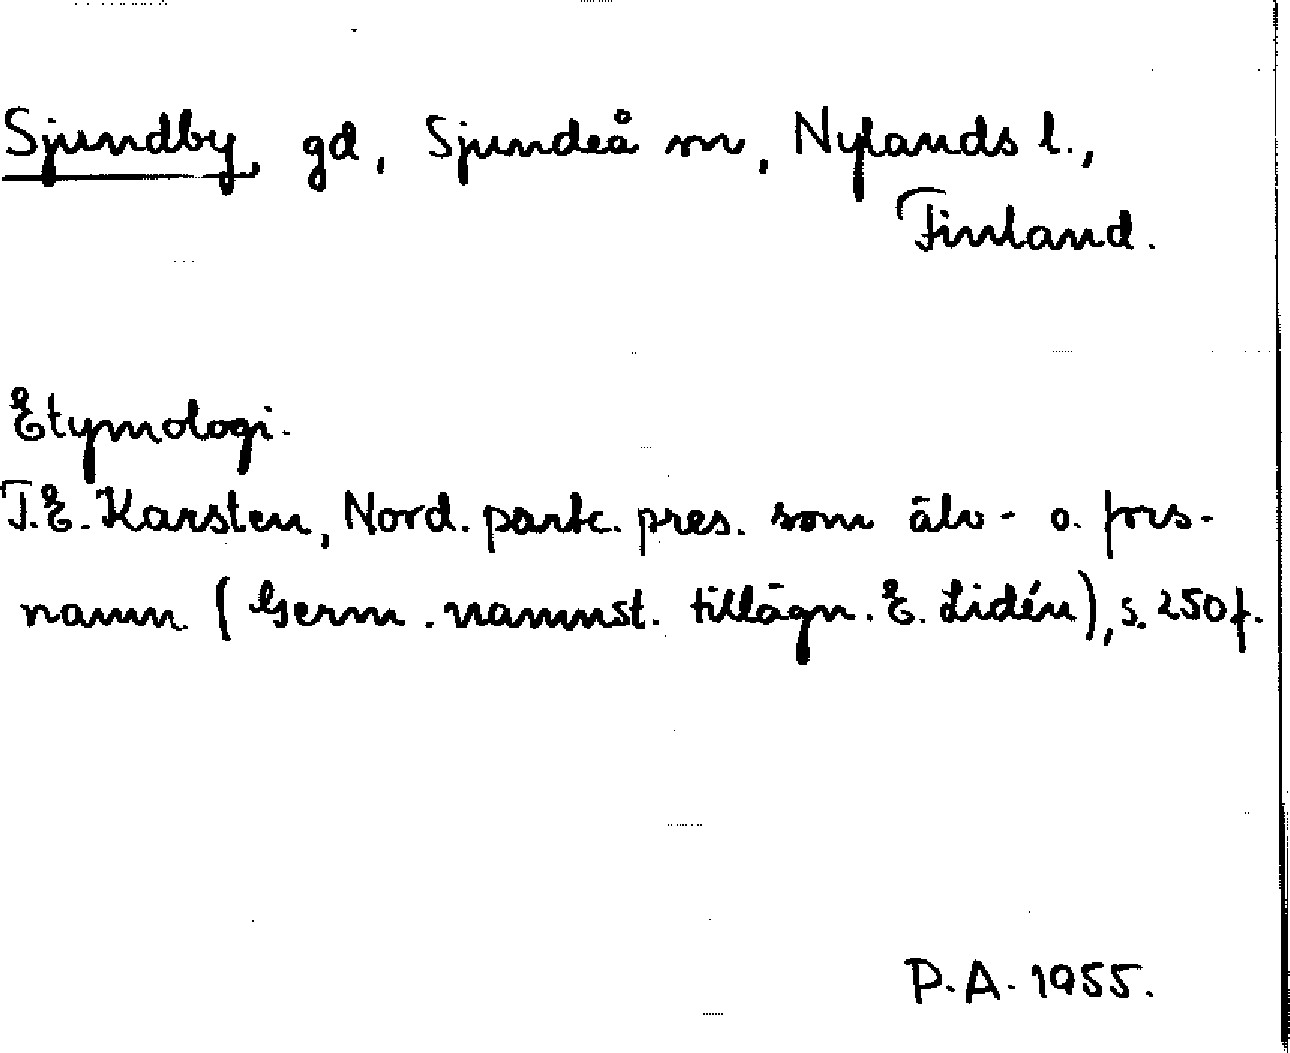 Sjundby, gd, Sjundeå sn, Nylands l.,
Finland.
Etymologi.
T.E. Karsten, Nord. partc. pres. som älv- o. fors-
namn (Germ. namnst. tillägn. E. Lidén), s. 250 f.
P.A. 1955.